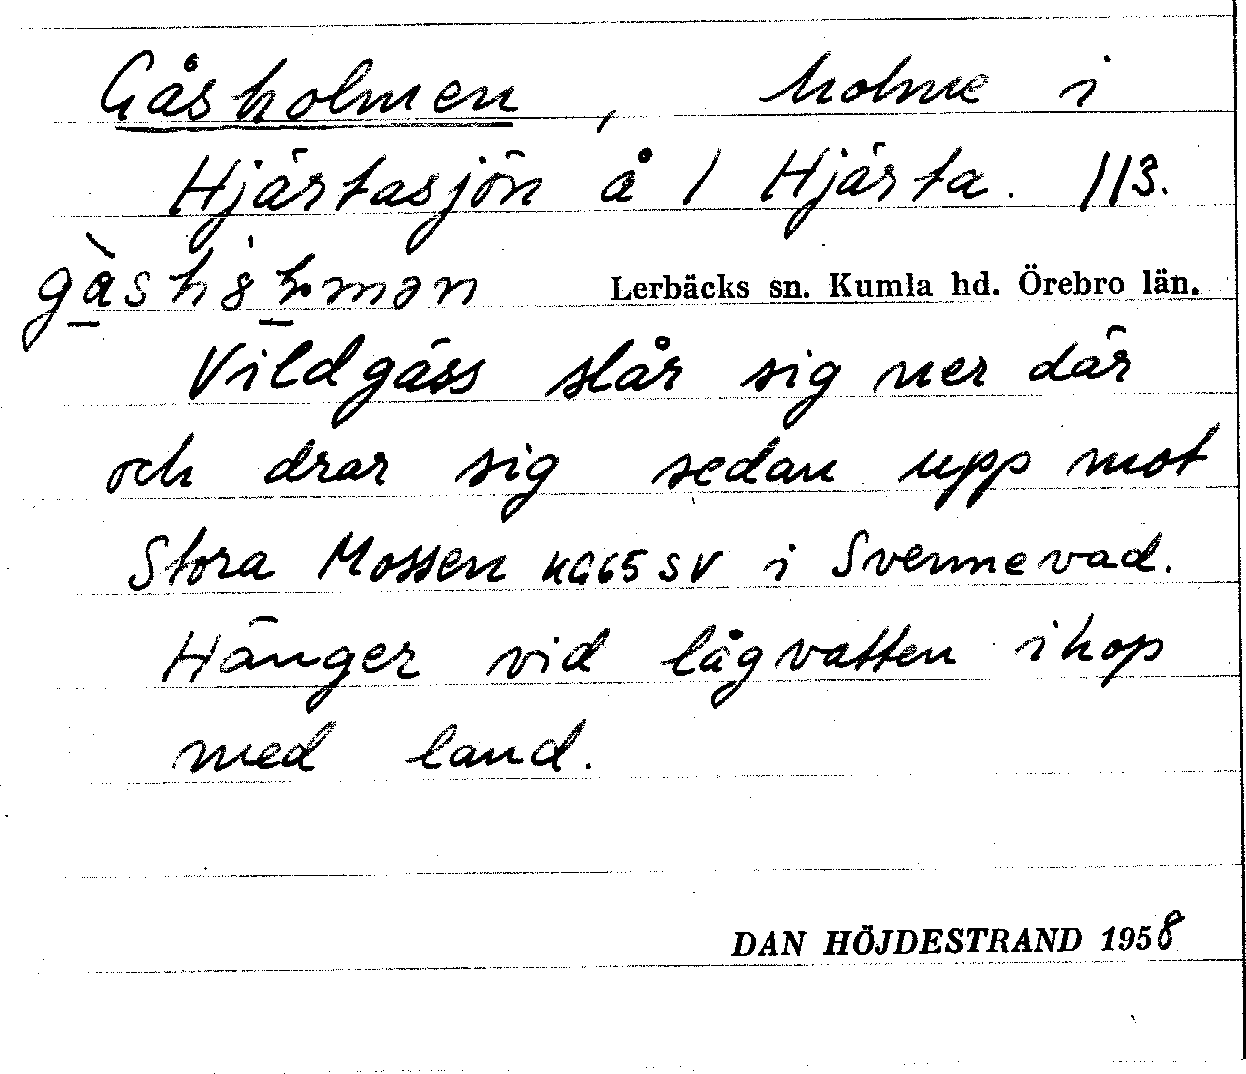 Gåsholmen, holme i
Hjärtasjön å 1 Hjärta. 113.
Lerbäcks sn. Kumla hd. Örebro län.
Vildgäss slår sig ner där
och drar sig sedan upp mot
Stora Mossen KG65SV i Svennevad.
Hänger vid lågvatten ihop
med land.
DAN HÖJDESTRAND 1958